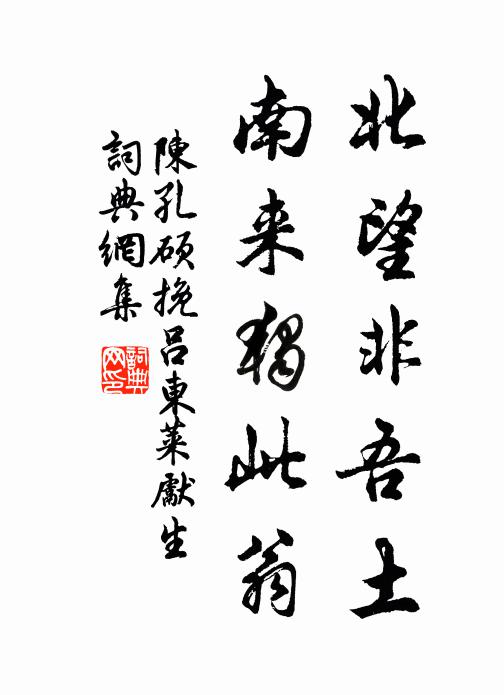 北望非吾土
南来獨此翁
陳孔硕挽吕東萊獻生
詞典網集
詞典网印